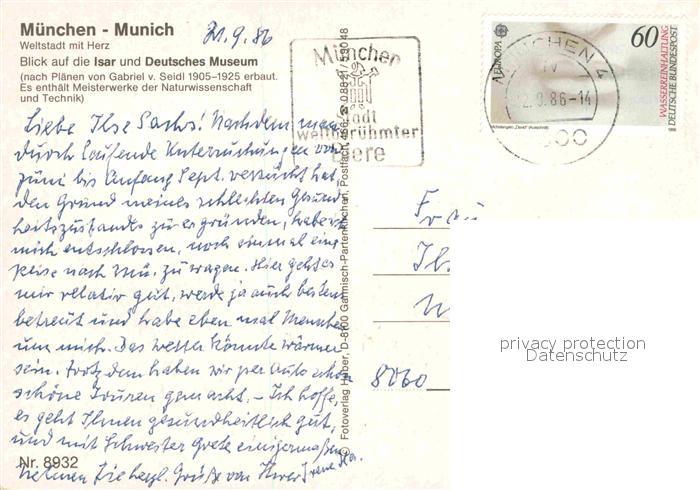 München - Munich
Weltstadt mit Herz
Blick auf die Isar und Deutsches Museum
(nach Plänen von Gabriel v. Seidl 1905–1925 erbaut.
Es enthält Meisterwerke der Naturwissenschaft
und Technik)
21.9.86
Liebe Ilse Sachs! Nachdem man
durch laufende Untersuchungen von
Juni bis Anfang Sept. versucht hat
den Grund meines schlechten Gesund-
heitszustandes zu ergründen, habe ich
mich entschlossen, noch einmal eine
Reise nach Mü. zu wagen. Hier geht es
mir relativ gut, werde ja auch bestens
betreut und habe eben mal Menschen
um mich. Das Wetter könnte wärmer
sein. Trotzdem haben wir per Auto schon
schöne Touren gemacht. - Ich hoffe,
es geht Ihnen gesundheitlich gut,
und mit Schwester Grete einigermaßen
nehmen Sie herzl. Grüße von Ihrer Irene
Nr. 8932
© Fotoverlag Huber, D-8100 Garmisch-Partenkirchen, Postfach, Tel. 08821/53048
München
Stadt
weltberühmter
Biere
MÜNCHEN 4
2.9.86-14
EUROPA
60
WASSERREINHALTUNG
DEUTSCHE BUNDESPOST
Michelangelo, "David" (Ausschnitt)
Frau
8060
privacy protection
Datenschutz